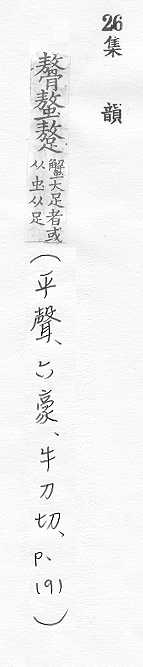 26集韻
螯蟹大足者或从虫从足(平聲、六豪、牛刀切、p、191)